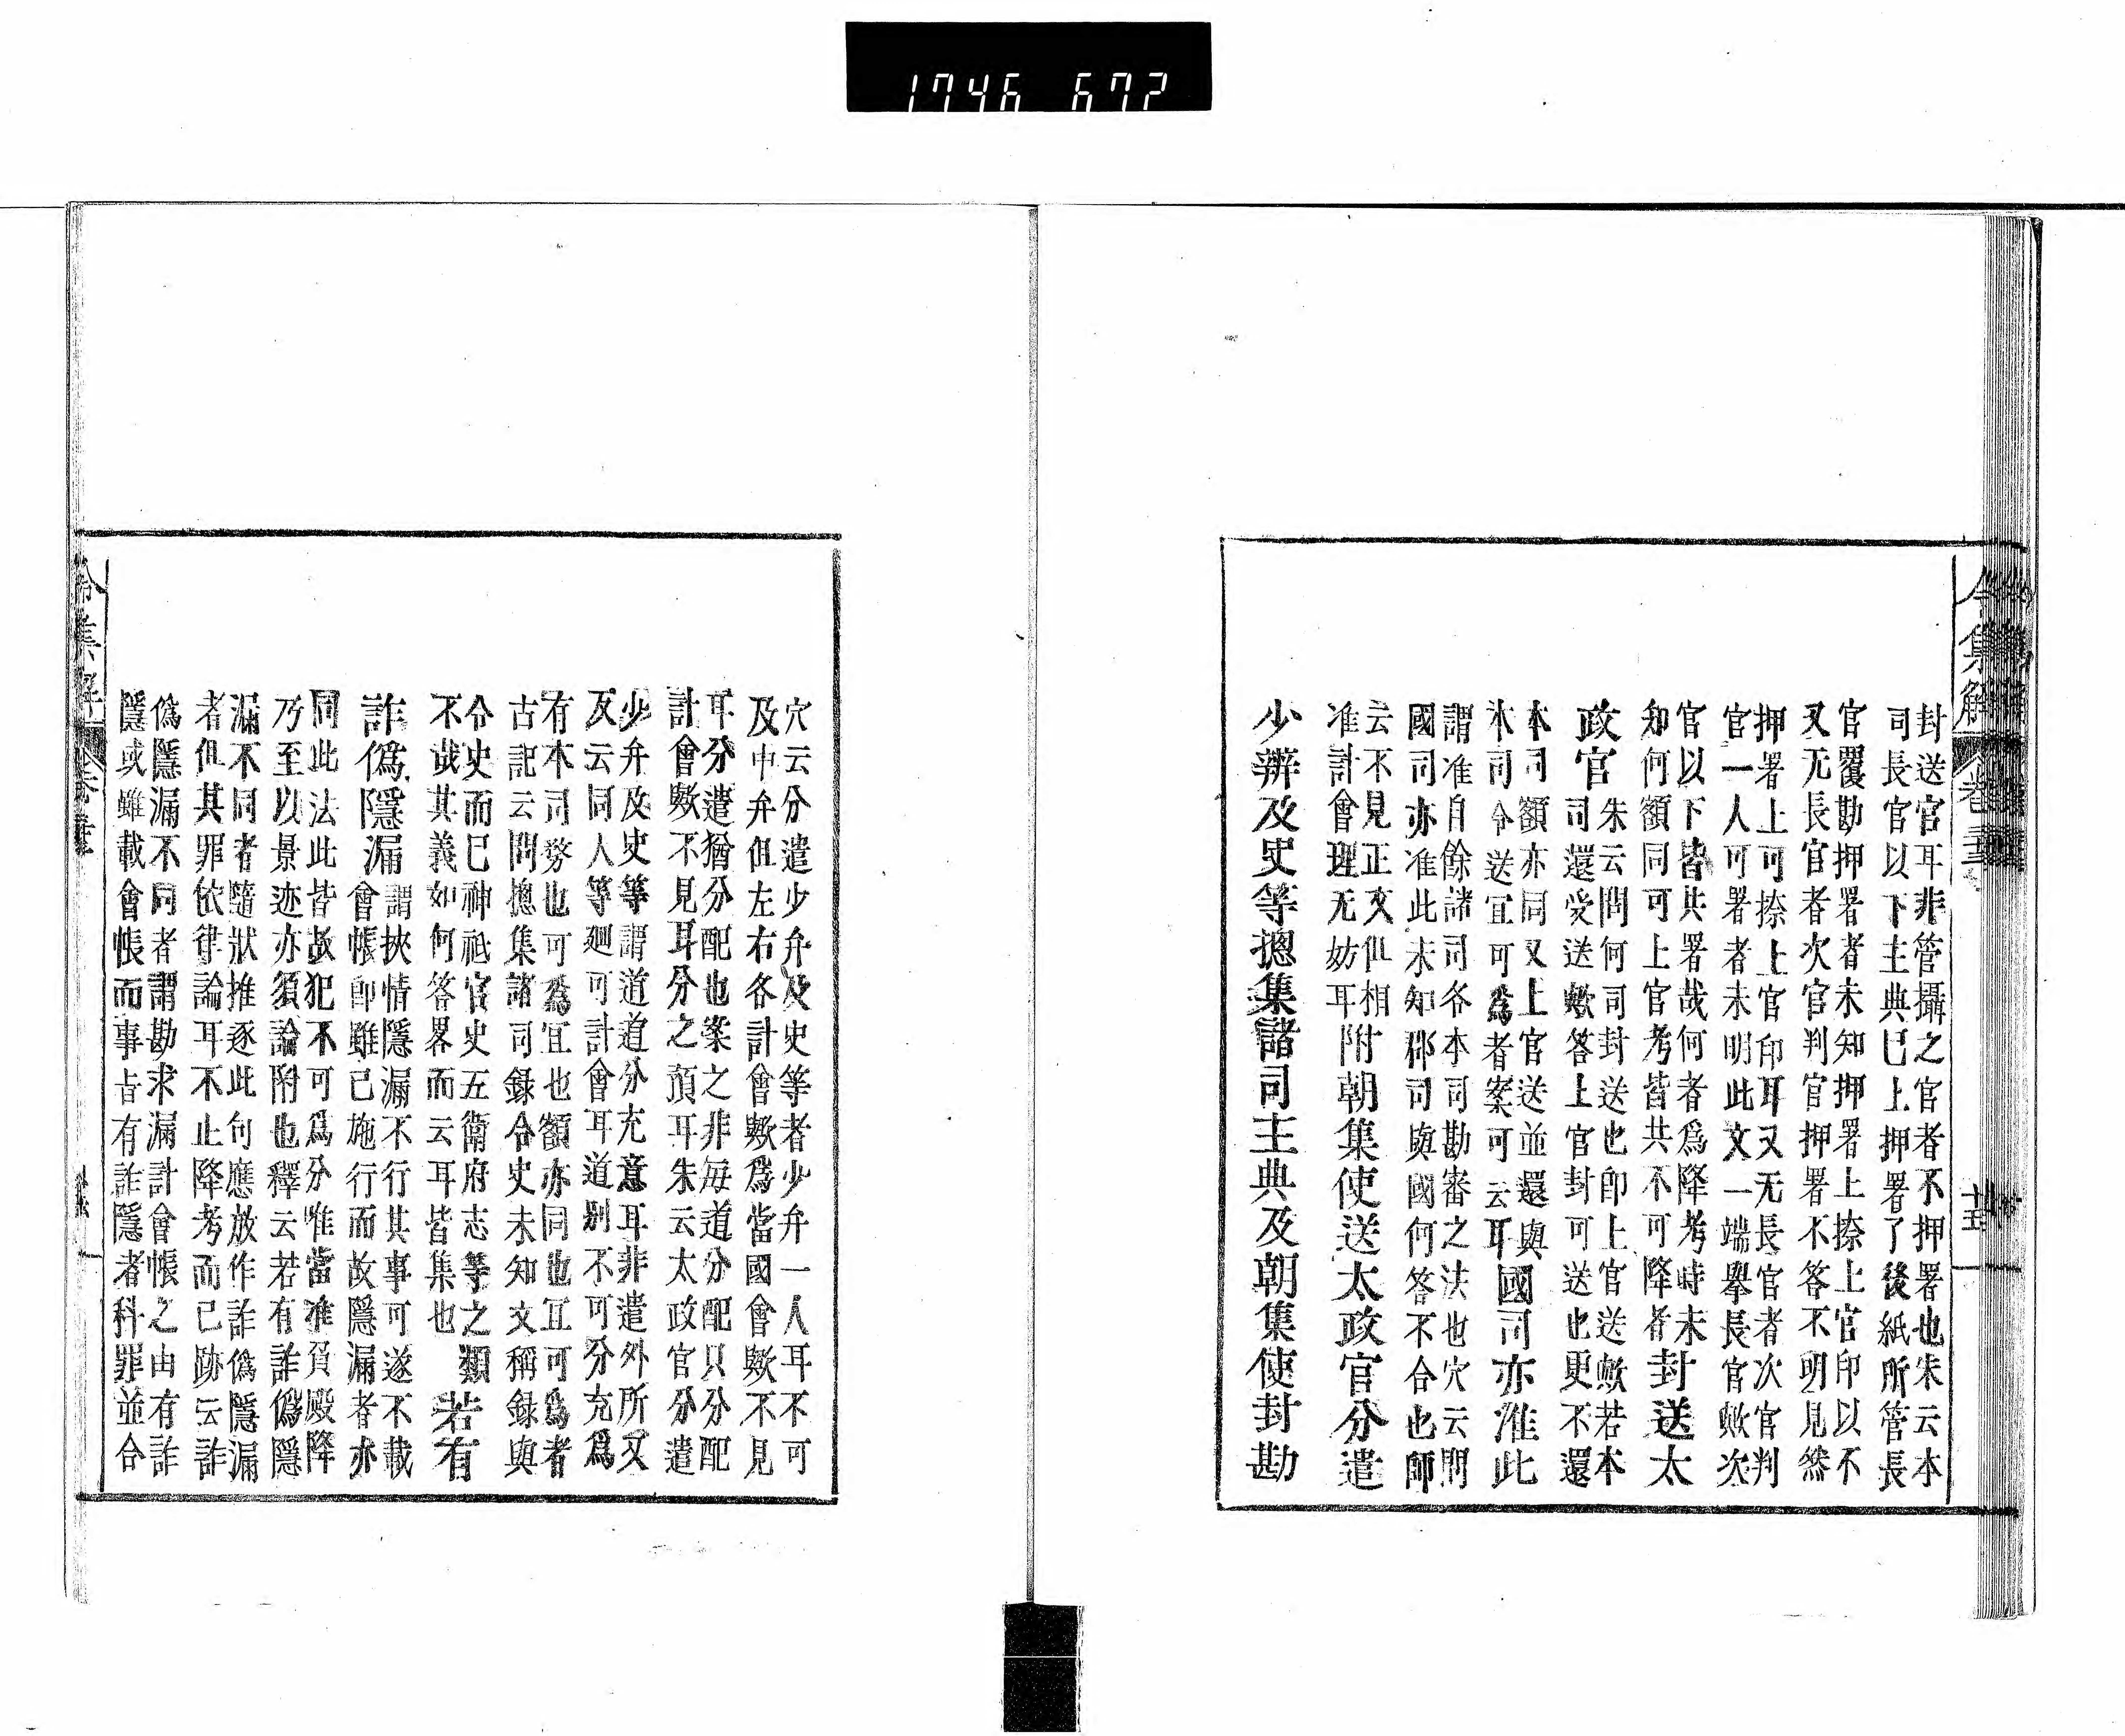 1746 672
令集解
封送官耳非管攝之官者不押署也朱云本
司長官以下主典已上押署了後紙所管長
官覆勘押署者未知押署上捺上官印以不
又无長官者次官判官押署不答不明見然
押署上可捺上官印耳又无長官者次官判
官一人可署者未明此文一端擧長官歟次
官以下皆共署哉何者爲降考時未
知何額同可上官考皆共不可降者
封送太
政官
朱云問何司封送也印上官送歟若本
司還受送歟答上官封可送也更不還
本司額亦同又上官送並還與
本司令送宜可爲者案可云耳
國司亦准此
謂准自餘諸司各本司勘審之法也穴云問
國司亦准此未知郡司與國何答不合也師
云不見正文但相
准計會理无妨耳
附朝集使送太政官分遣
少辨及史等摠集諸司主典及朝集使封勘
穴云分遣少弁及史等者少弁一人耳不可
及中弁但左右各計會歟爲當國會歟不見
耳分遣猶分配也案之非毎道分配只分配
計會歟不見耳分之預耳朱云太政官分遣
少弁及史等謂道道分充意耳非遣外所又
及云同人等廻可計會耳道別不可分充爲
有本司務也可爲宜也額亦同也宜可爲者
古記云問摠集諸司録令史未知文稱録與
令史而已神祇官史五衛府志等之類
不哉其義如何答畧而云耳皆集也
若有
詐偽隱漏
謂挾情隱漏不行其事可遂不載
會帳即雖已施行而故隱漏者亦
同此法此皆故犯不可爲分唯當准負殿降
乃至以景迹亦須論附也釋云若有詐偽隱
漏不同者隨狀推逐此句應放作詐偽隱漏
者但其罪依律論耳不止降考而已跡云詐
偽隱漏不同者謂勘求漏計會帳之由有詐
隱或雖載會帳而事旨有詐隱者科罪並合